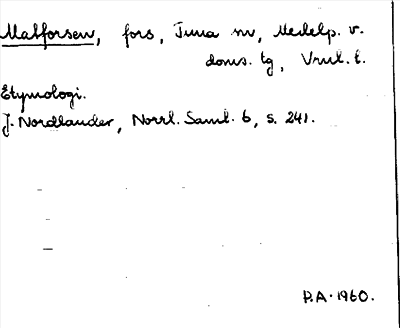 Matforsen, fors, Tuna sn, Medelp. v.
doms. tg, Vnl. l.
Etymologi.
J. Nordlander, Norrl. Saml. 6, s. 241.
P.A. 1960.